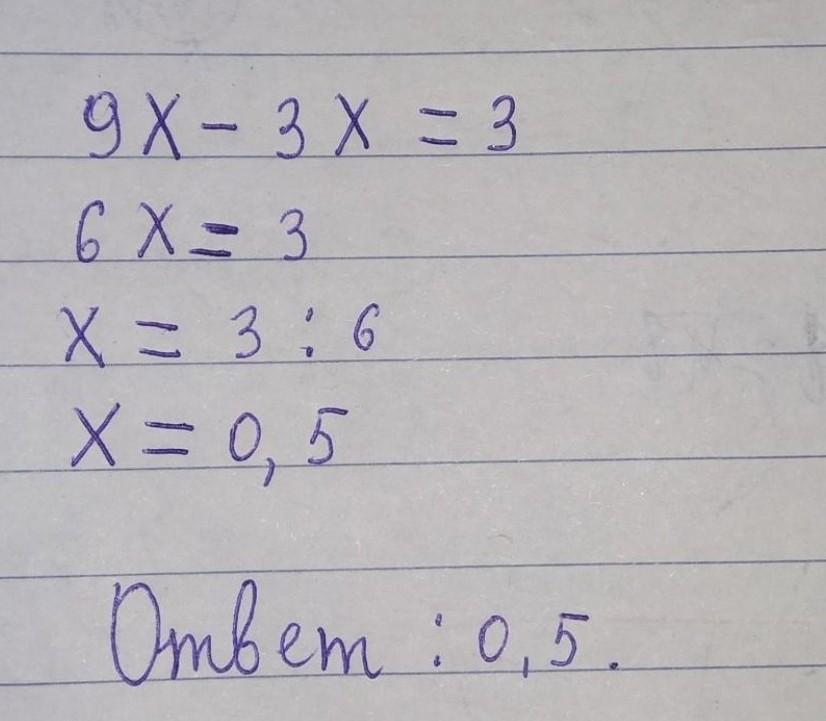 9x - 3x = 3
6x = 3
x = 3 : 6
x = 0,5
Ответ : 0,5.